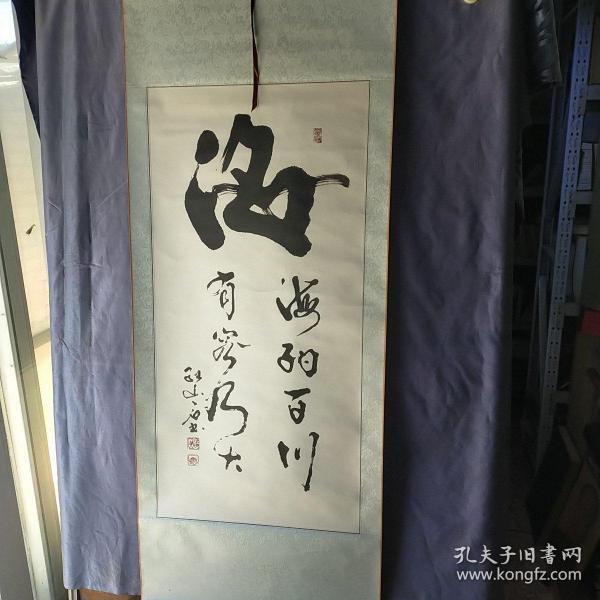 海
海纳百川
有容乃大
孔夫子旧書网
www.kongfz.com